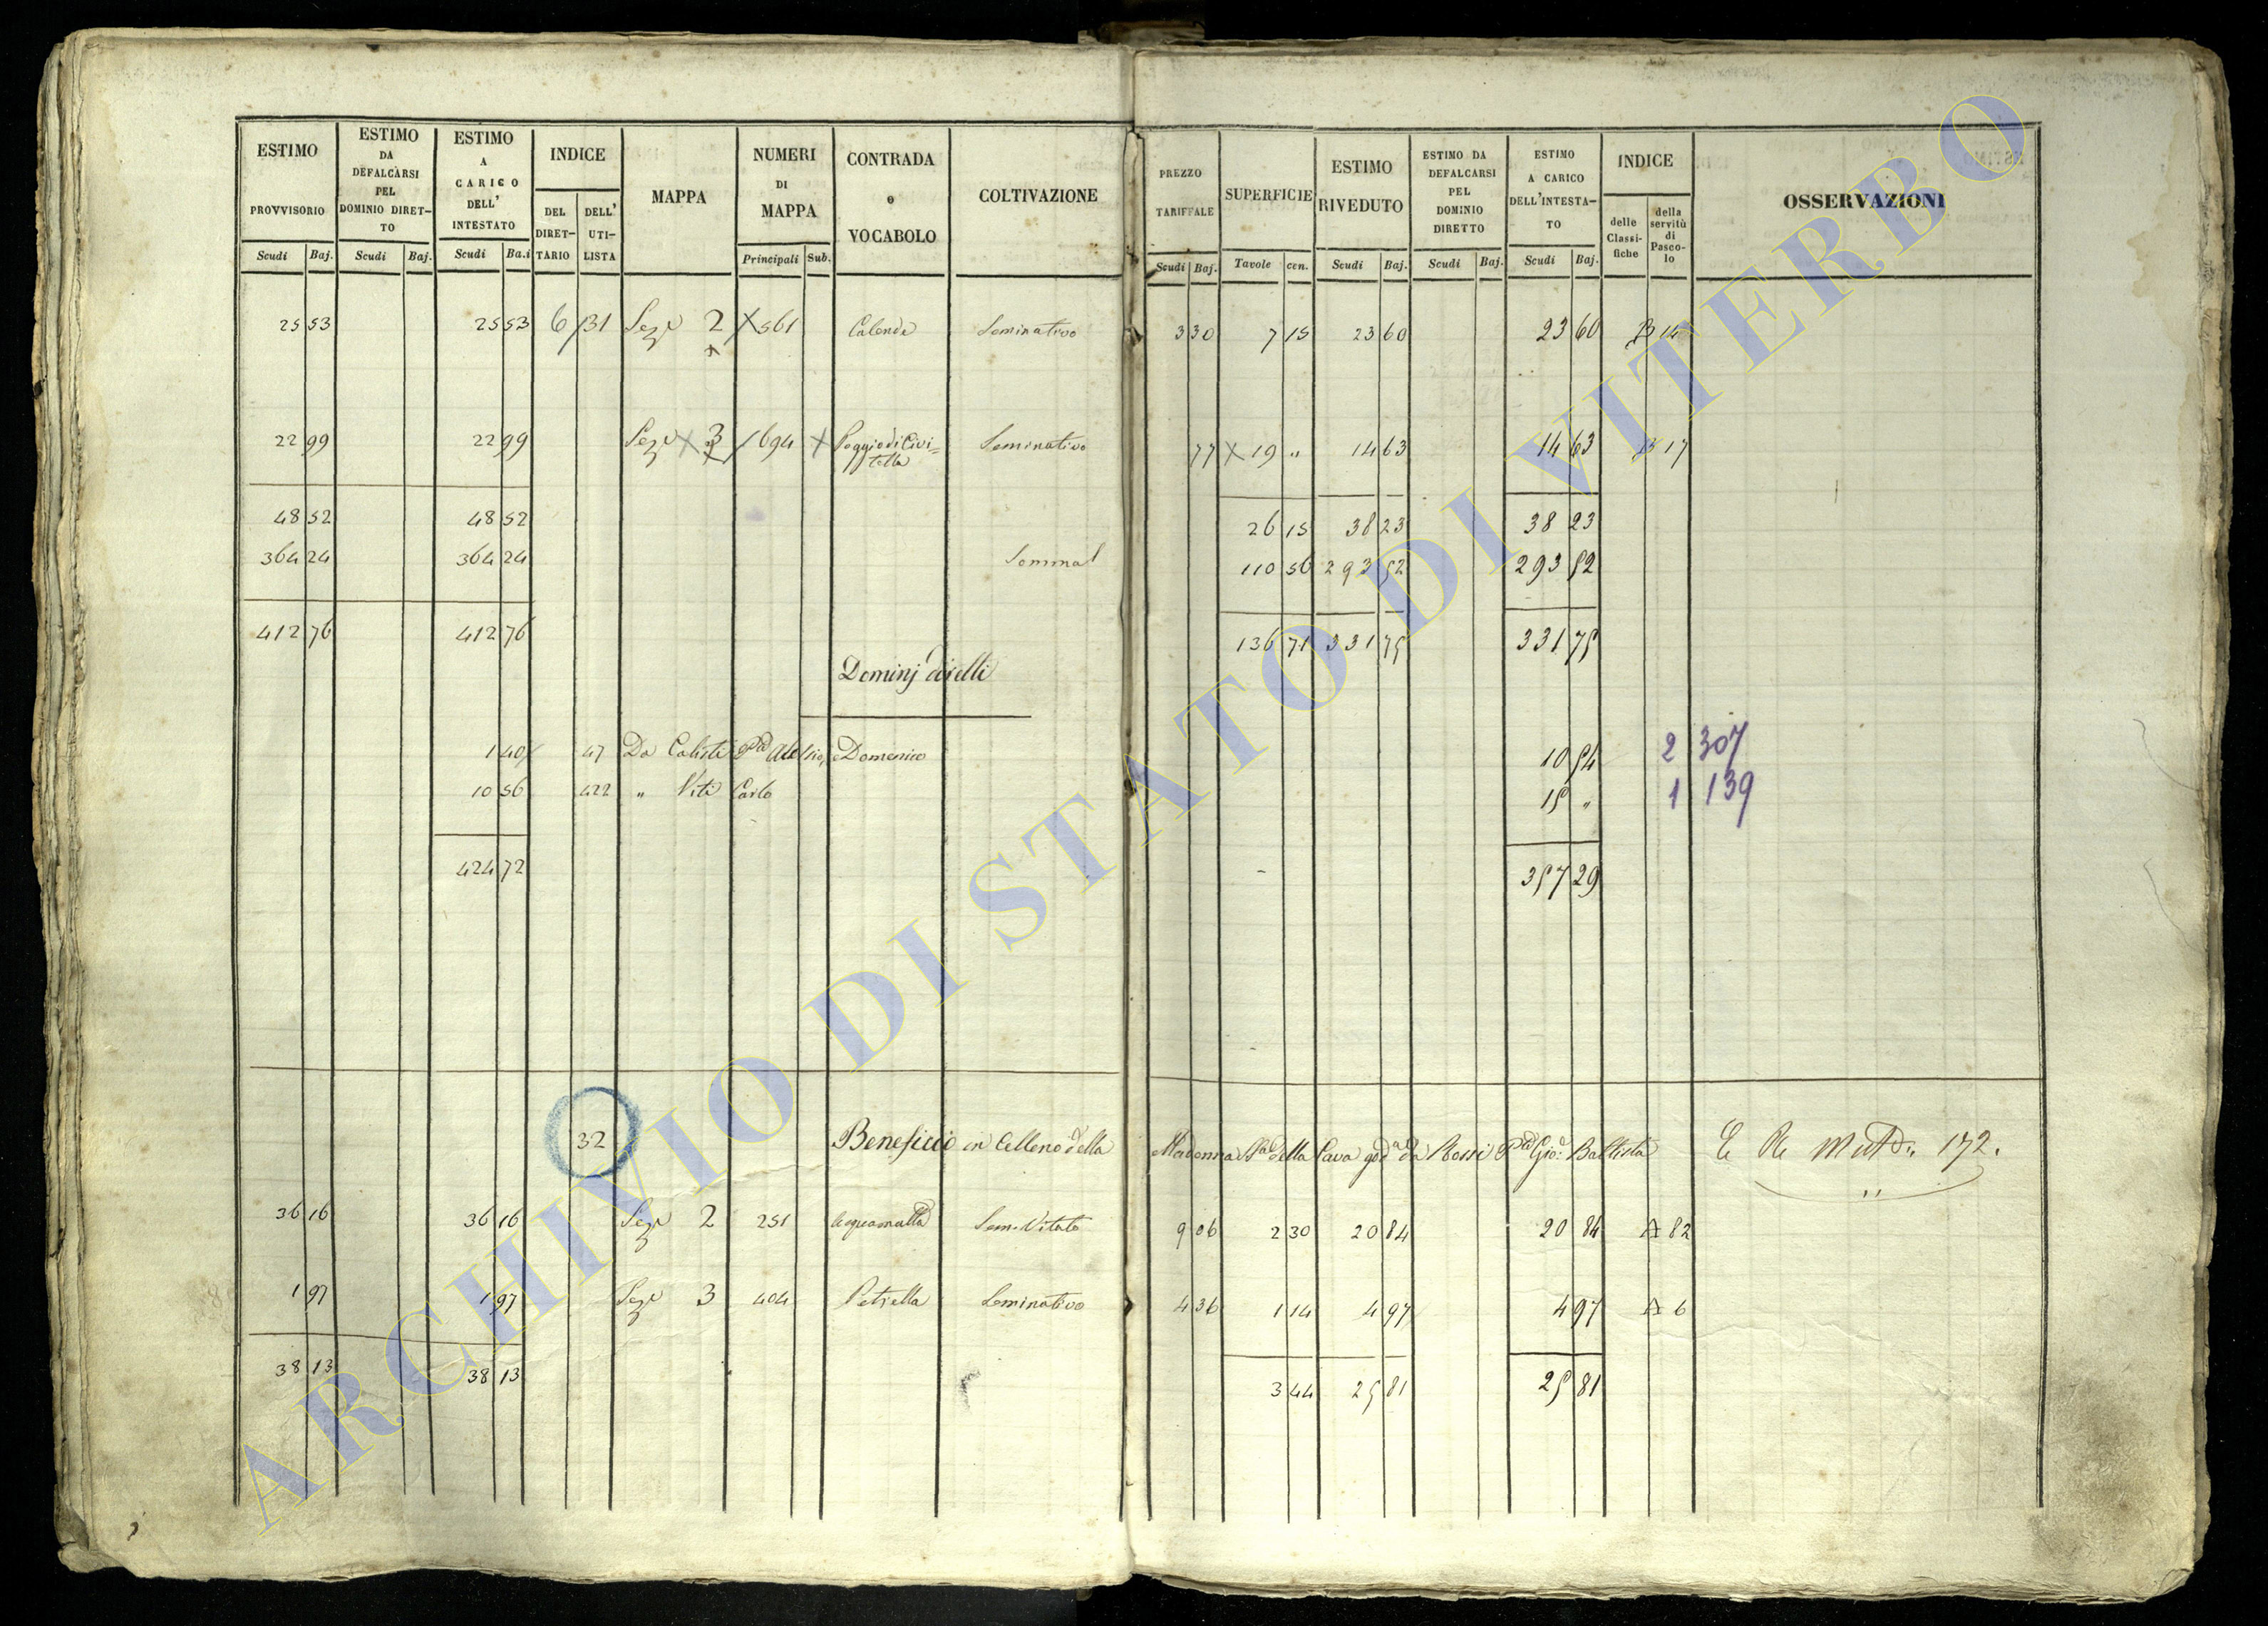 ESTIMO PROVVISORIO Scudi Baj. ESTIMO DA DEFALCARSI PEL DOMINIO DIRETTO Scudi Baj. ESTIMO A CARICO DELL' INTESTATO Scudi Ba.i INDICE DEL DIRETTARIO DELL' UTILISTA MAPPA NUMERI DI MAPPA Principali Sub. CONTRADA o VOCABOLO COLTIVAZIONE PREZZO TARIFFALE Scudi Baj. SUPERFICIE Tavole cen. ESTIMO RIVEDUTO Scudi Baj. ESTIMO DA DEFALCARSI PEL DOMINIO DIRETTO Scudi Baj. ESTIMO A CARICO DELL'INTESTATO Scudi Baj. INDICE delle Classifiche della servitù di Pascolo OSSERVAZIONI
25 53 25 53 6 131 Sez.e 2 561 Calende Seminativo 3 30 7 15 23 60 23 60 B 14
22 99 22 99 Sez.e 3 694 Poggio di Civitella Seminativo 77 19 " 14 63 14 63 B 17
48 52 48 52 26 15 38 23 38 23
364 24 364 24 Somma 110 56 293 52 293 52
412 76 412 76 136 71 331 75 331 75
Dominj diretti
1 40 47 Da Calisti Domenico 10 54 2 307
10 56 422 " Viti Carlo 15 " 1 139
424 72 357 29
32 Beneficio in Celleno della Madonna della Cava god. da Rossi Gio: Battista 172.
36 16 36 16 Sez.e 2 251 Acquamatta Sem. Vitato 9 06 2 30 20 84 20 84 A 82
1 97 1 97 Sez.e 3 404 Petrella Seminativo 4 36 1 14 4 97 4 97 A 6
38 13 38 13 3 44 25 81 25 81
ARCHIVIO DI STATO DI VITERBO